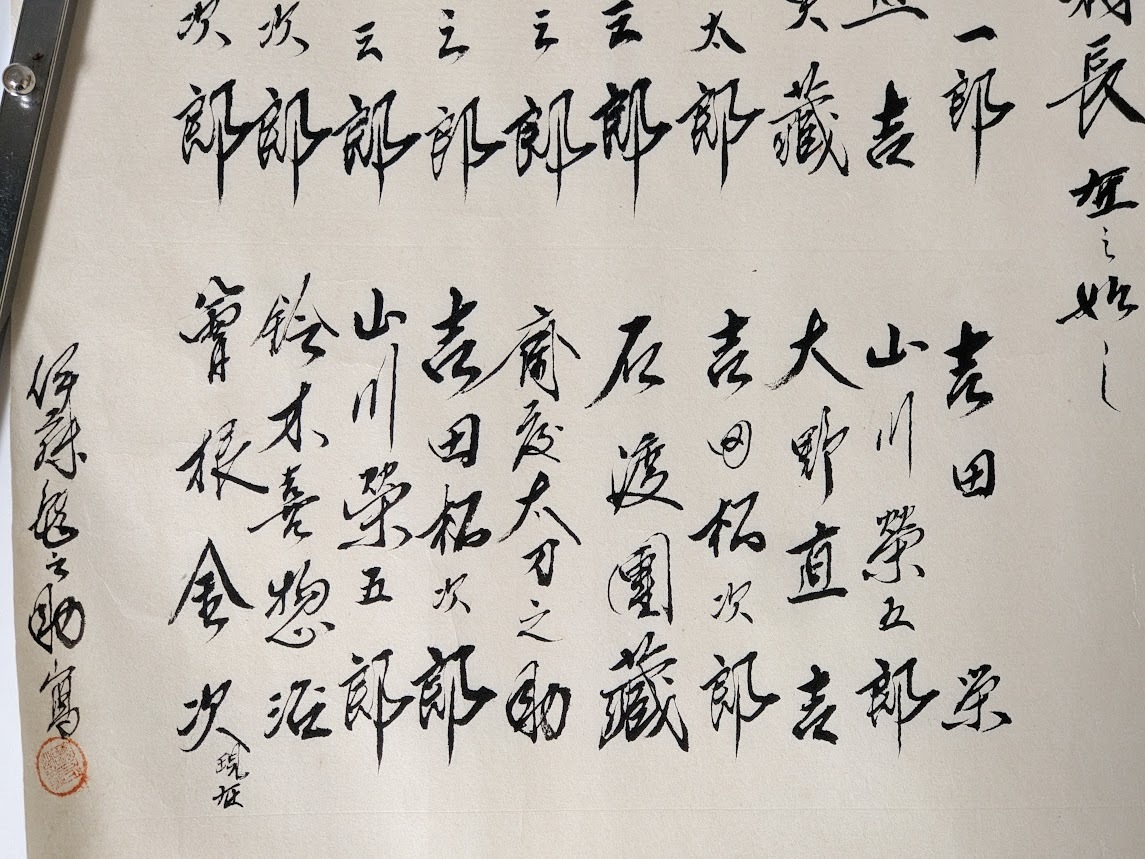 長 在之始し
一郎
吉
藏
太郎
五郎
三郎
之郎
三郎
次郎
次郎
吉田 栄
山川榮五郎
大野直吉
吉田柘次郎
石渡團藏
斎度太刀之助
吉田柘次郎
山川榮五郎
鈴木喜惣治
曽根金次 現在
伊藤 之助寫